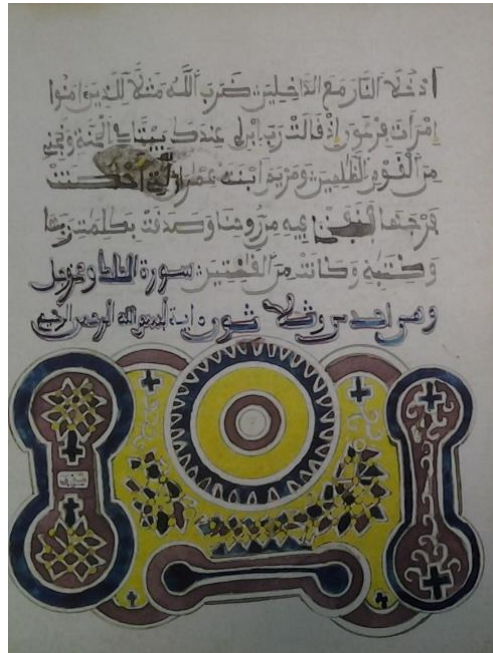 ادخلا النار مع الداخلين ضرب الله مثلا للذين امنوا
امرات فرعون اذ قالت رب ابن لي عندك بيتا في الجنة ونجني
من القوم الظلمين ومريم ابنة عمران التي احصنت
فرجها فنفخنا فيه من روحنا وصدقت بكلمت ربها
وكتبه وكانت من القنتين سورة
اية بسم الله الرحمن الرحيم